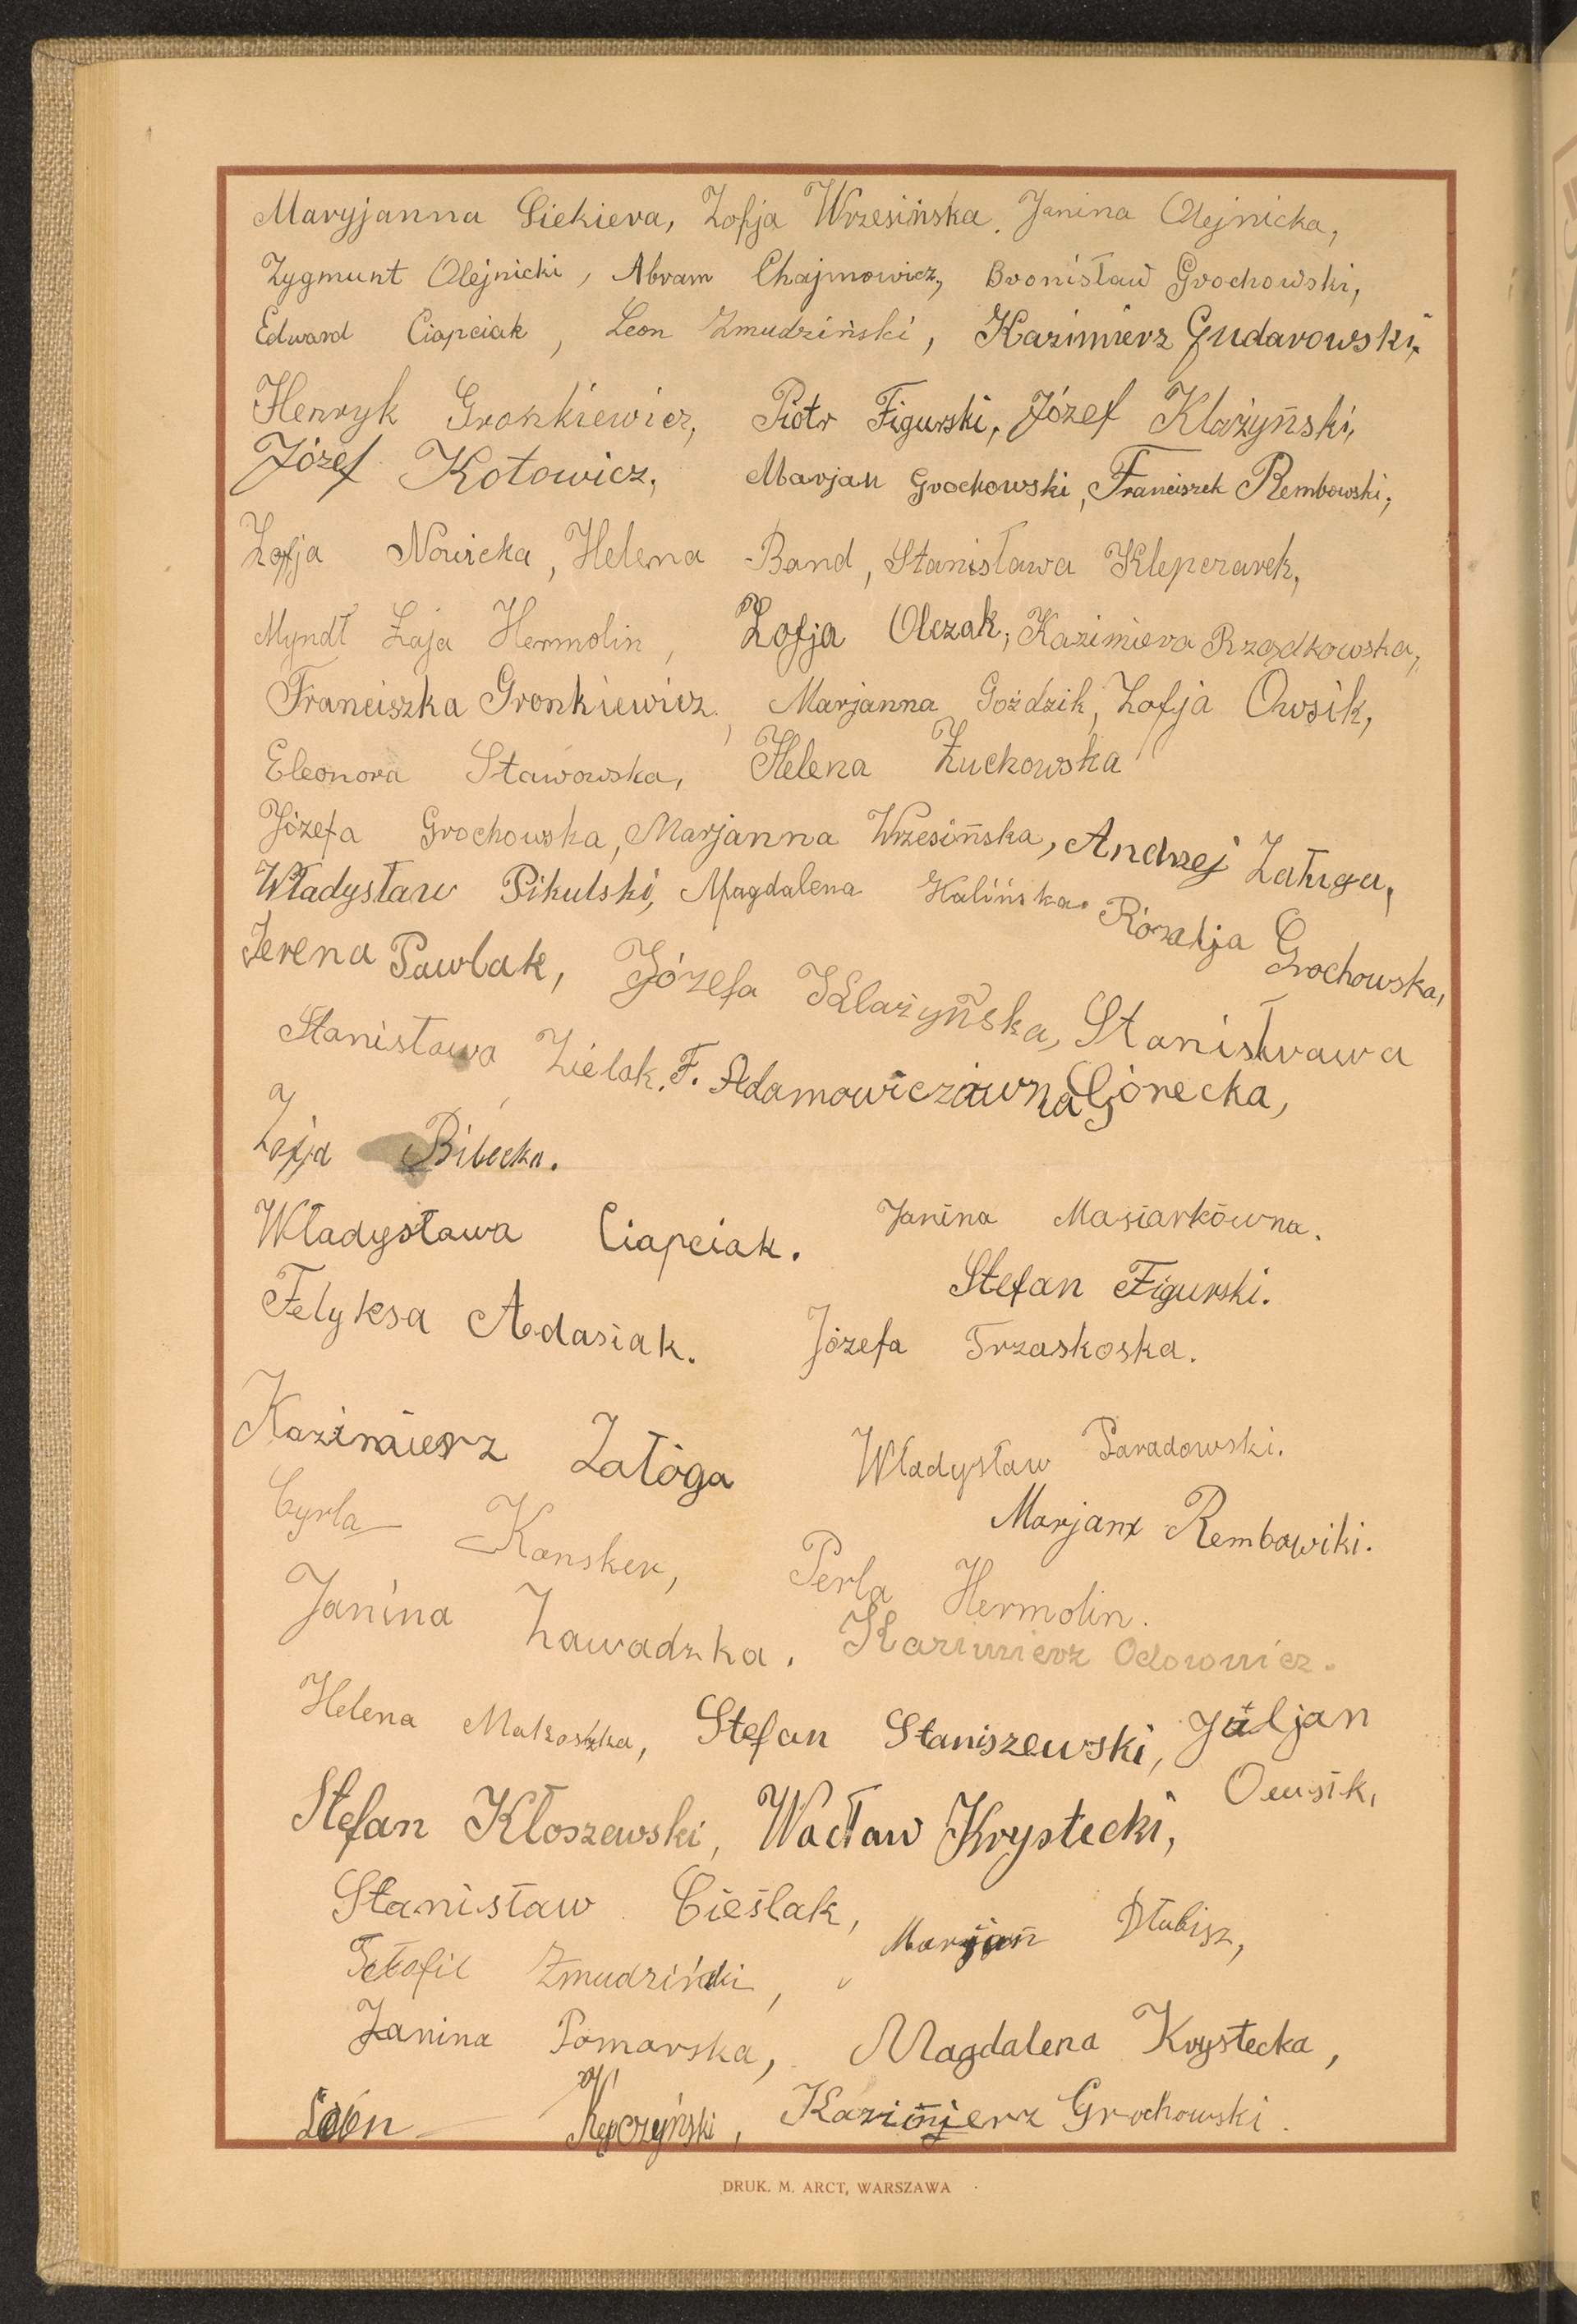 Maryjanna Siekiera, Zofja Wrzesińska, Janina Olejnicka,
Zygmunt Olejnicki, Abram Chajmowicz, Bronisław Grochowski,
Edward Ciapciak, Leon Żmudziński, Kazimierz Gudarowski,
Henryk Gronkiewicz, Piotr Figurski, Józef Klażyński,
Józef Kotowicz, Marjan Grochowski, Franciszek Rembowski,
Zofja Nowicka, Helena Band, Stanisława Klepczarek,
Myndl Łaja Hermolin, Zofja Olczak, Kazimiera Rządkowska,
Franciszka Gronkiewicz, Marjanna Goździk, Zofja Owsik,
Eleonora Stawowska, Helena Żuchowska
Józefa Grochowska, Marjanna Wrzesińska, Andrzej Załuga,
Władysław Pikulski, Magdalena Kalińska. Rózalja Grochowska,
Jerena Pawlak, Józefa Klażyńska, Stanisława
Stanisława Zielak, F. Adamowiczówna Górecka,
Zofja Bilecka.
Władysława Ciapciak. Janina Masiarkówna.
Stefan Figurski.
Felyksa Adasiak. Józefa Trzaskoska.
Kazimierz Załóga Władysław Paradowski.
Cyrla Konsker, Marjan Rembowiki.
Perla Hermolin.
Janina Zawadzka. Kazimierz Odorowicz.
Helena Makoszka, Stefan Staniszewski, Juljan
Owsik,
Stefan Kłoszewski, Wacław Krystecki,
Stanisław Cieślak, Marjan Dłubisz,
Teofil Żmudziński,
Janina Pomarska, Magdalena Krystecka,
Leon Kępczyński, Kazimierz Grochowski.
DRUK. M. ARCT, WARSZAWA